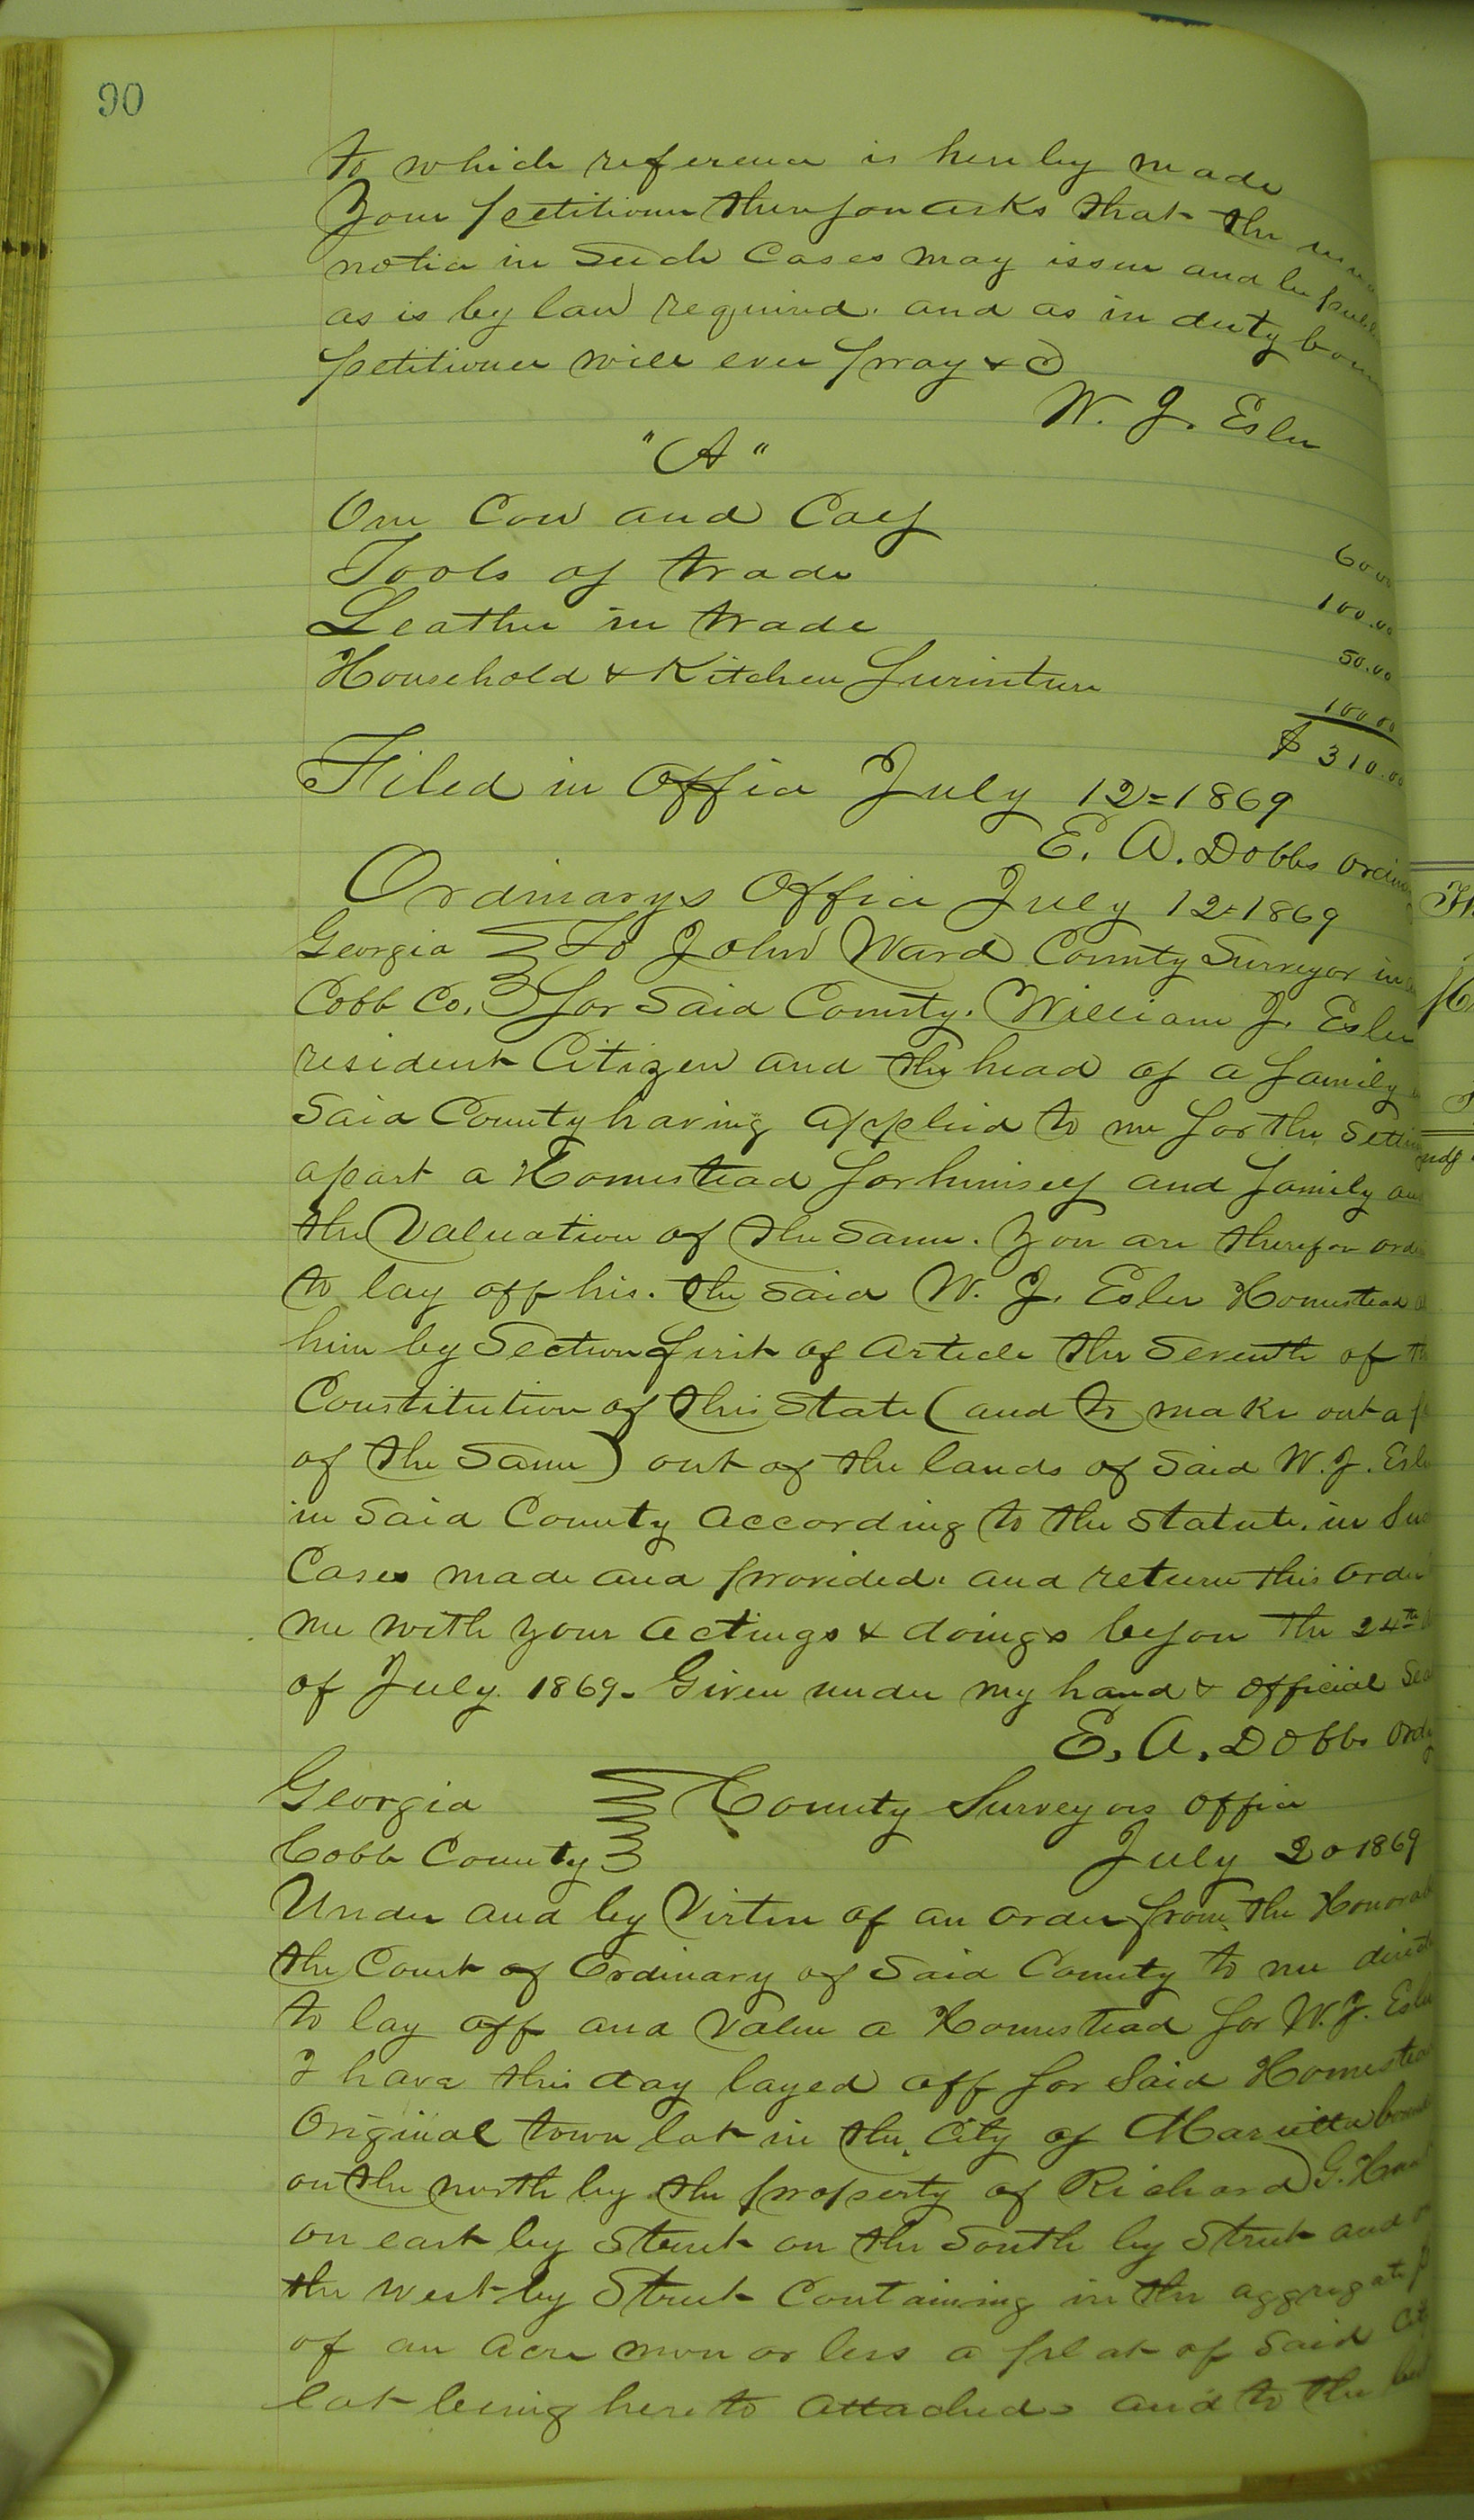 90
to which reference is hereby made
Your petitioner therefore asks that the
notice in Such Cases may issue and be
as is by law required. and as in duty
petitioner will ever pray & c
W. J. Esler
"A"
One Cow and Calf 60.00
Tools of trade 100.00
Leather in trade 50.00
Household & Kitchen furinture 100.00
$ 310.00
Filed in Office July 12=1869
E. A. Dobbs
Ordinarys Office July 12=1869
Georgia } To John Ward County Surveyor in
Cobb Co. } for Said County. William J. Esler
resident Citizen and the head of a family
Said County having applied to me for the
apart a Homestead for himself and family
the Valuation of the Same. You are therefore
to lay off his. the said W. J. Esler Homestead
him by Section first of Article the Seventh of
Constitution of this State (and to make out a
of the Same) out of the lands of Said W. J. Esler
in Said County According to the Statute. in
Cases made and provided. and return this Order
me with your Actings & doings before the 24th
of July 1869. Given under my hand & official
E. A. Dobbs Ordy
Georgia } County Surveyors office
Cobb County } July 20 1869
Under and by Virtue of an order from the
the Court of Ordinary of Said County to me
to lay off and Value a Homestead for W. J. Esler
I have this day layed off for Said
Original town lot in the City of Marietta
on the north by the property of Richard G.
on east by Street on the South by Street and
the West by Street Containing in the aggregate
of an Acre more or less a plat of Said
lot being here to attached. and to the